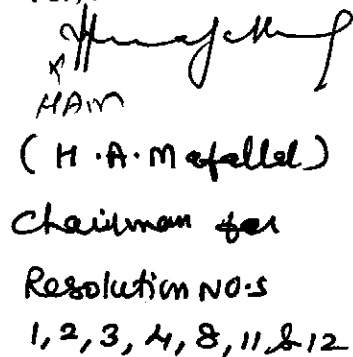 (H.A.Mafallal)
Chairman for
Resolution NO.s
1, 2, 3, 4, 8, 11, & 12